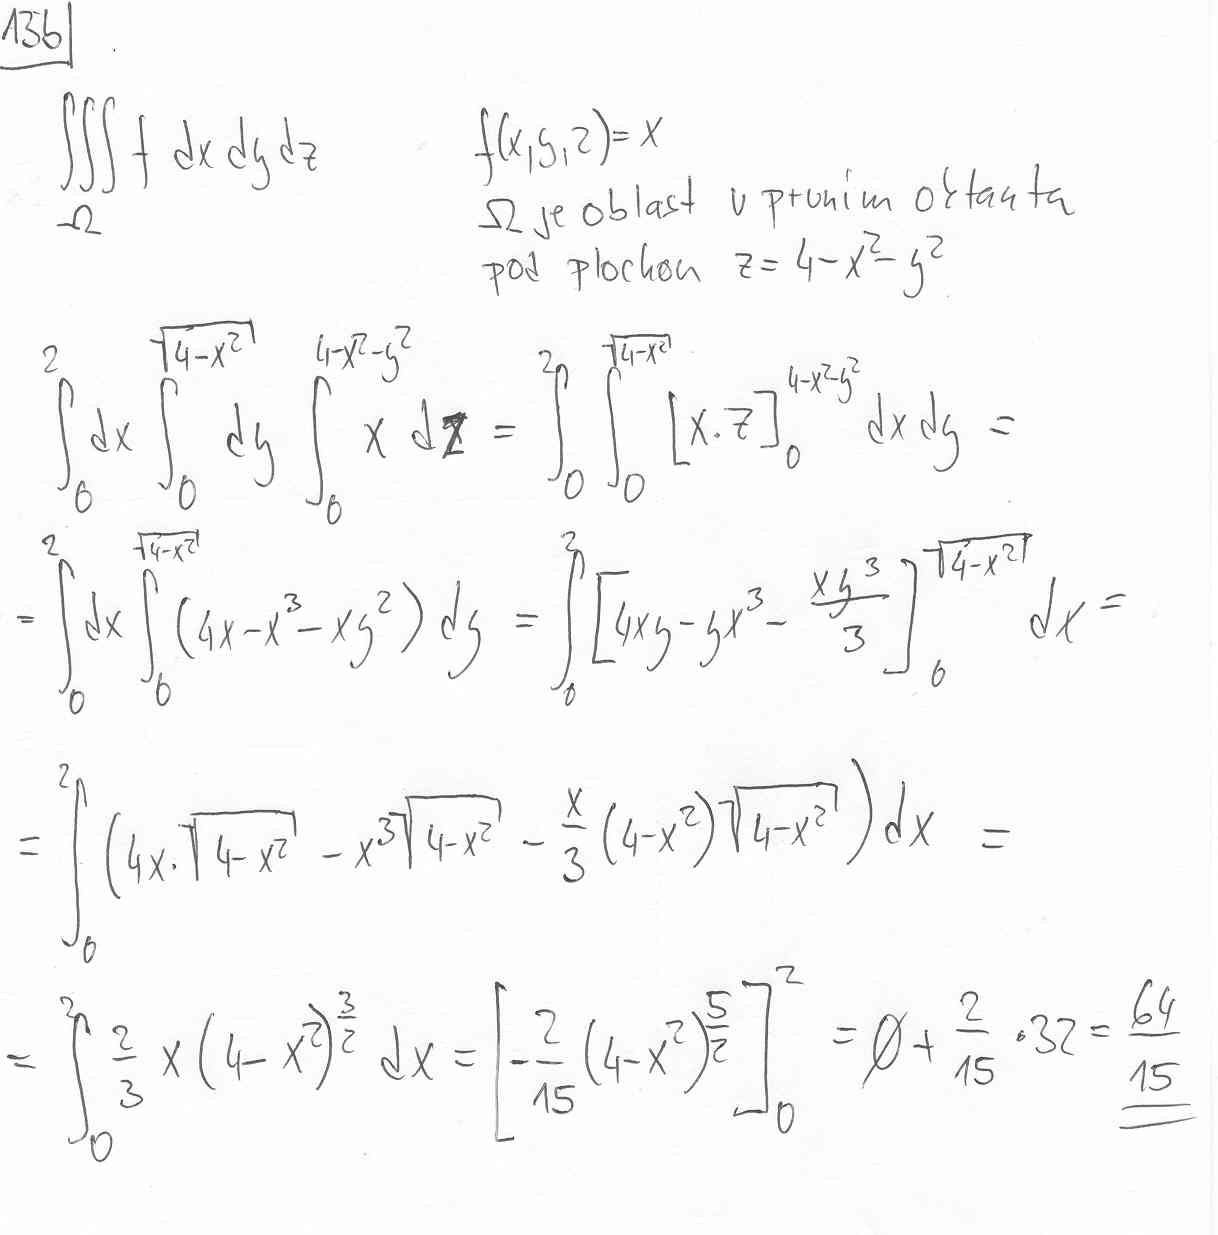 136
∭_Ω f dx dy dz f(x,y,z)=x
Ω je oblast v prvním oktantu
pod plochou z=4-x²-y²
∫_0^2 dx ∫_0^{√(4-x²)} dy ∫_0^{4-x²-y²} x dz = ∫_0^2 ∫_0^{√(4-x²)} [x.z]_0^{4-x²-y²} dx dy =
= ∫_0^2 dx ∫_0^{√(4-x²)} (4x-x³-xy²) dy = ∫_0^2 [4xy-yx³-xy³/3]_0^{√(4-x²)} dx =
= ∫_0^2 (4x.√(4-x²) - x³√(4-x²) - x/3 (4-x²)√(4-x²)) dx =
= ∫_0^2 2/3 x (4-x²)^{3/2} dx = [-2/15 (4-x²)^{5/2}]_0^2 = 0 + 2/15 · 32 = 64/15